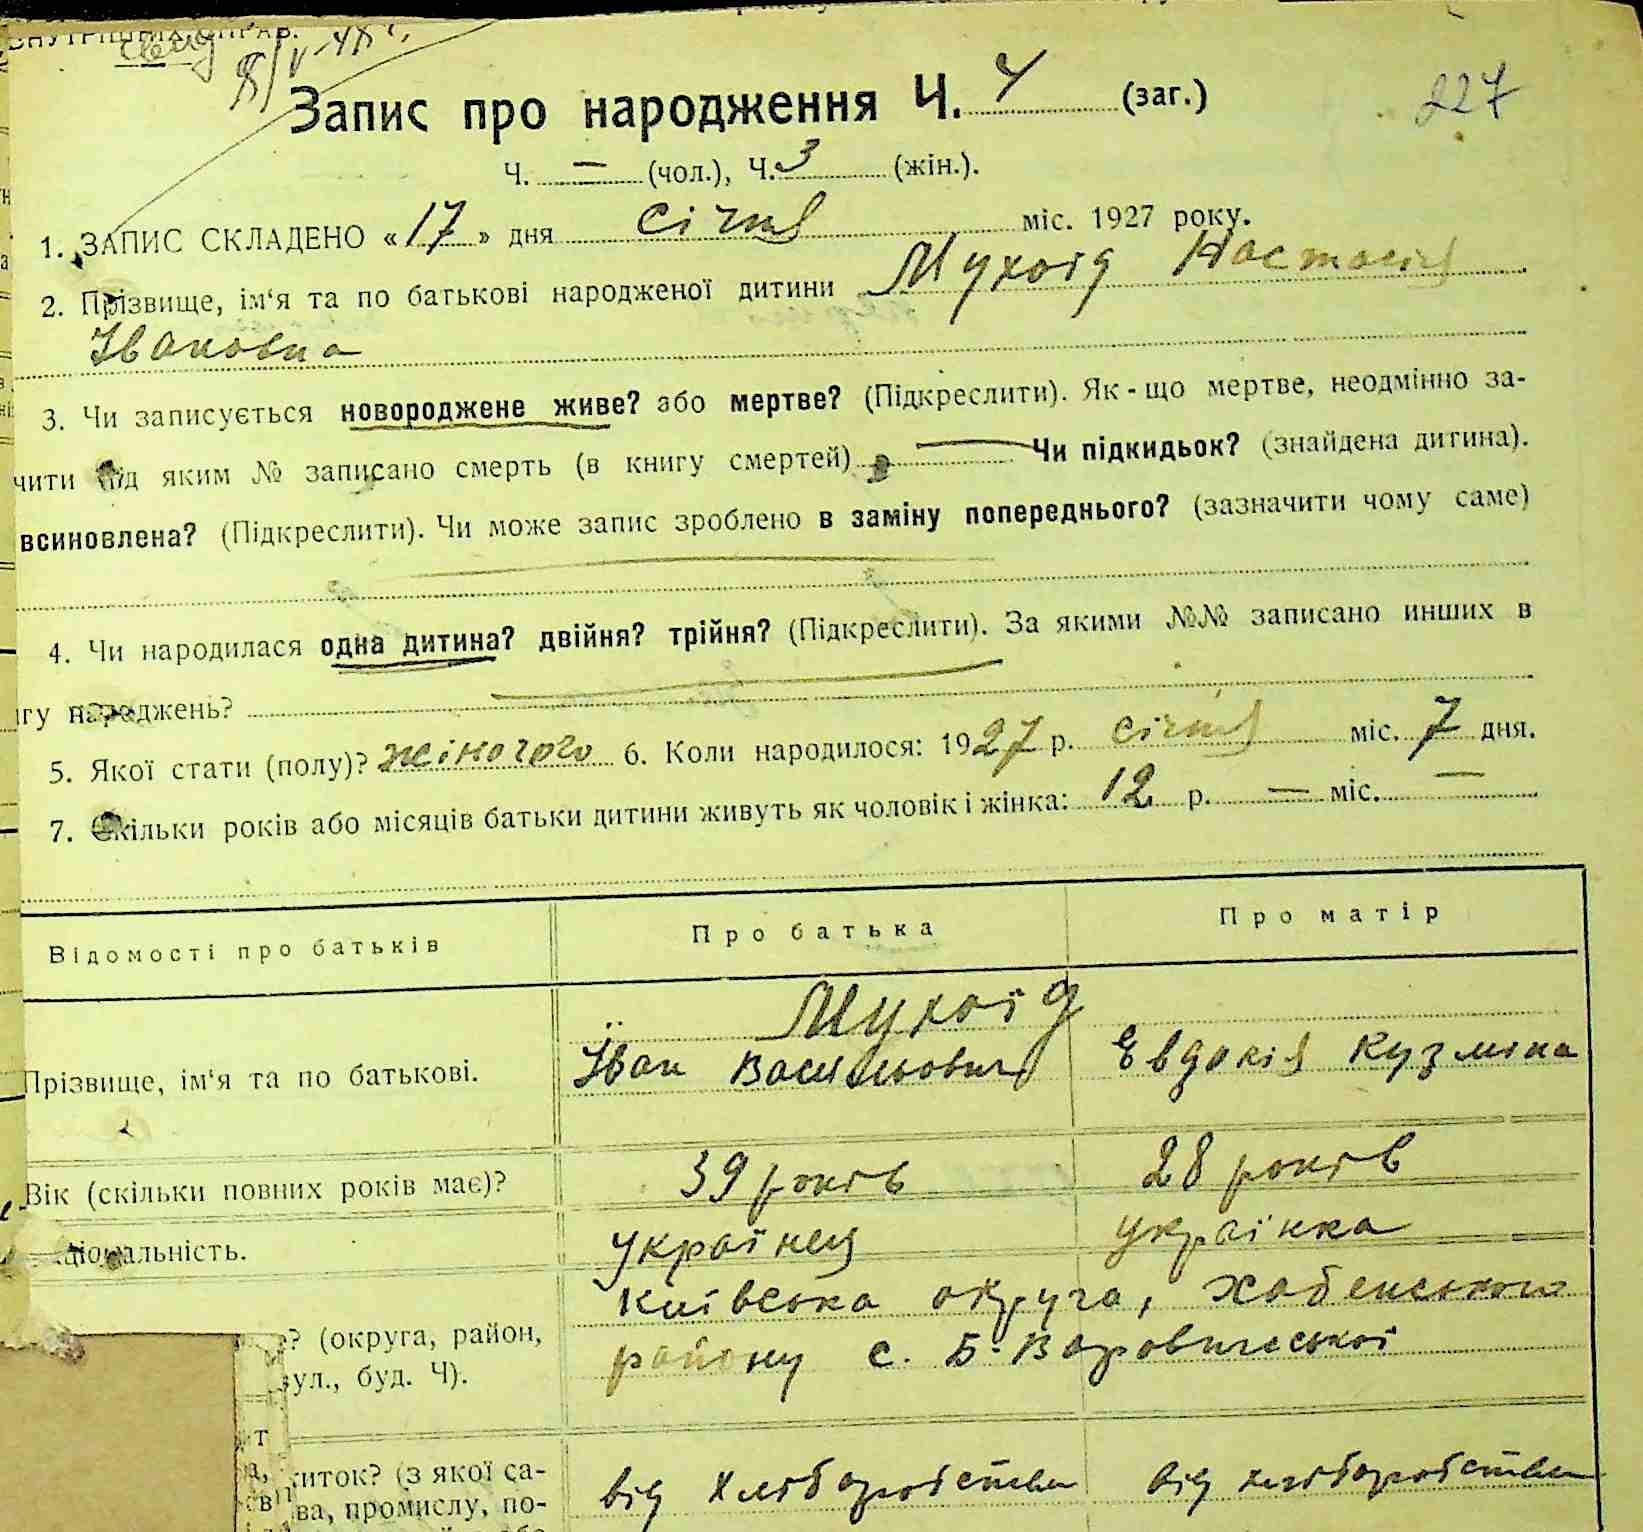 ВНУТРІШНІХ СПРАВ.
Запис про народження Ч. 4 (заг.)
227
Ч. — (чол.), Ч. 3 (жін.).
1. ЗАПИС СКЛАДЕНО «17» дня січня міс. 1927 року.
2. Прізвище, ім‘я та по батькові народженої дитини Мухоїд Настасія
Івановна
3. Чи записується новороджене живе? або мертве? (Підкреслити). Як - що мертве, неодмінно за-
чити під яким № записано смерть (в книгу смертей) — Чи підкидьок? (знайдена дитина).
всиновлена? (Підкреслити). Чи може запис зроблено в заміну попереднього? (зазначити чому саме)
4. Чи народилася одна дитина? двійня? трійня? (Підкреслити). За якими №№ записано инших в
гу народжень?
5. Якої стати (полу)? жіночого 6. Коли народилося: 1927 р. січня міс. 7 дня.
7. Скільки років або місяців батьки дитини живуть як чоловік і жінка: 12 р. — міс. —
Відомості про батьків Про батька Про матір
Мухоїд
Прізвище, ім‘я та по батькові. Іван Васильович Евдокія Кузміна
Вік (скільки повних років має)? 39 років 28 років
ціональність. Українець Українка
Київська округа, Хабенського
е? (округа, район, району с. Б. Варовическої
вул., буд. Ч).
иток? (з якої са- від хліборобства від хліборобства
ва, промислу, по-